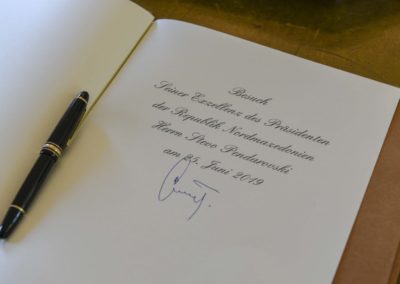 Besuch
Seiner Exzellenz des Präsidenten
der Republik Nordmazedonien
Herrn Stevo Pendarovski
am 24. Juni 2019